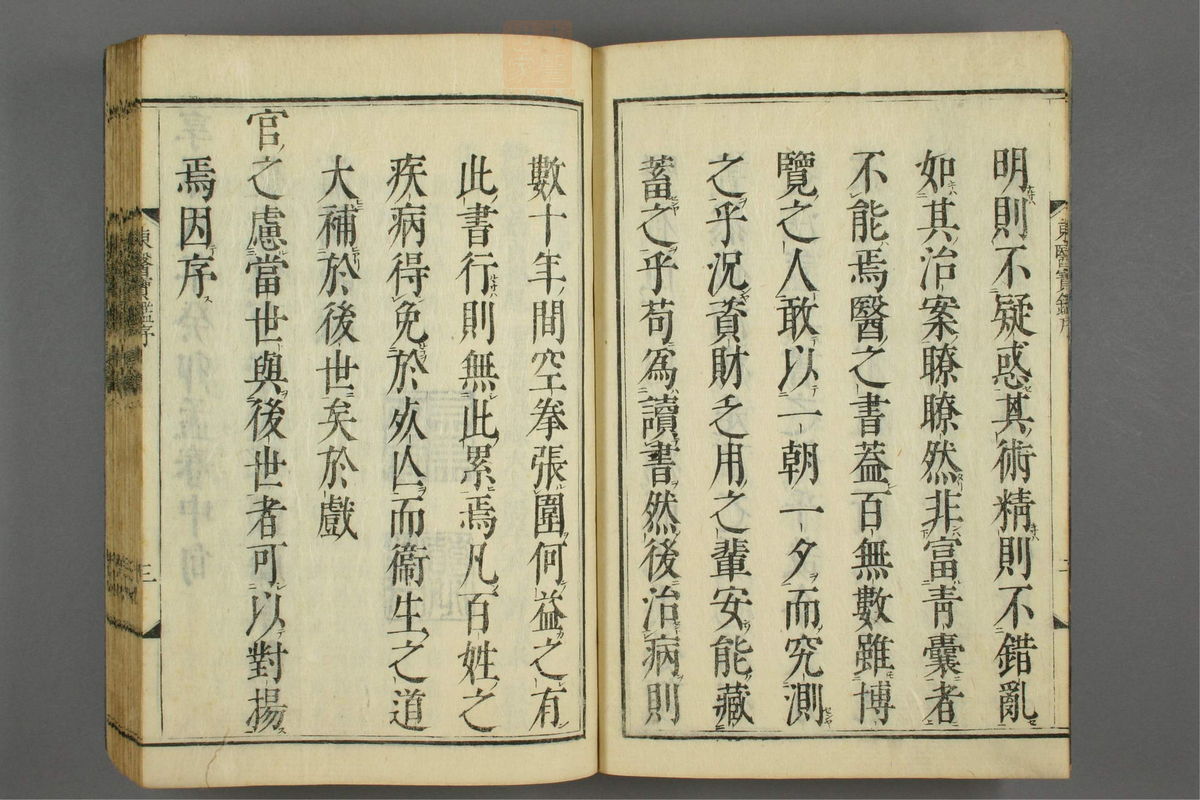 明則不疑惑其術精則不錯亂
如其治案瞭瞭然非富靑囊者
不能焉醫之書蓋百無數雖博
覽之人敢以一朝一夕而究測
之乎況資財乏用之輩安能藏
蓄之乎苟爲讀書然後治病則
東醫寶鑑序
數十年間空拳張圍何益之有
此書行則無此累焉凡百姓之
疾病得免於夭亾而衞生之道
大補於後世矣於戲
官之慮當世與後世者可以對揚
焉因序
東醫寶鑑序
三